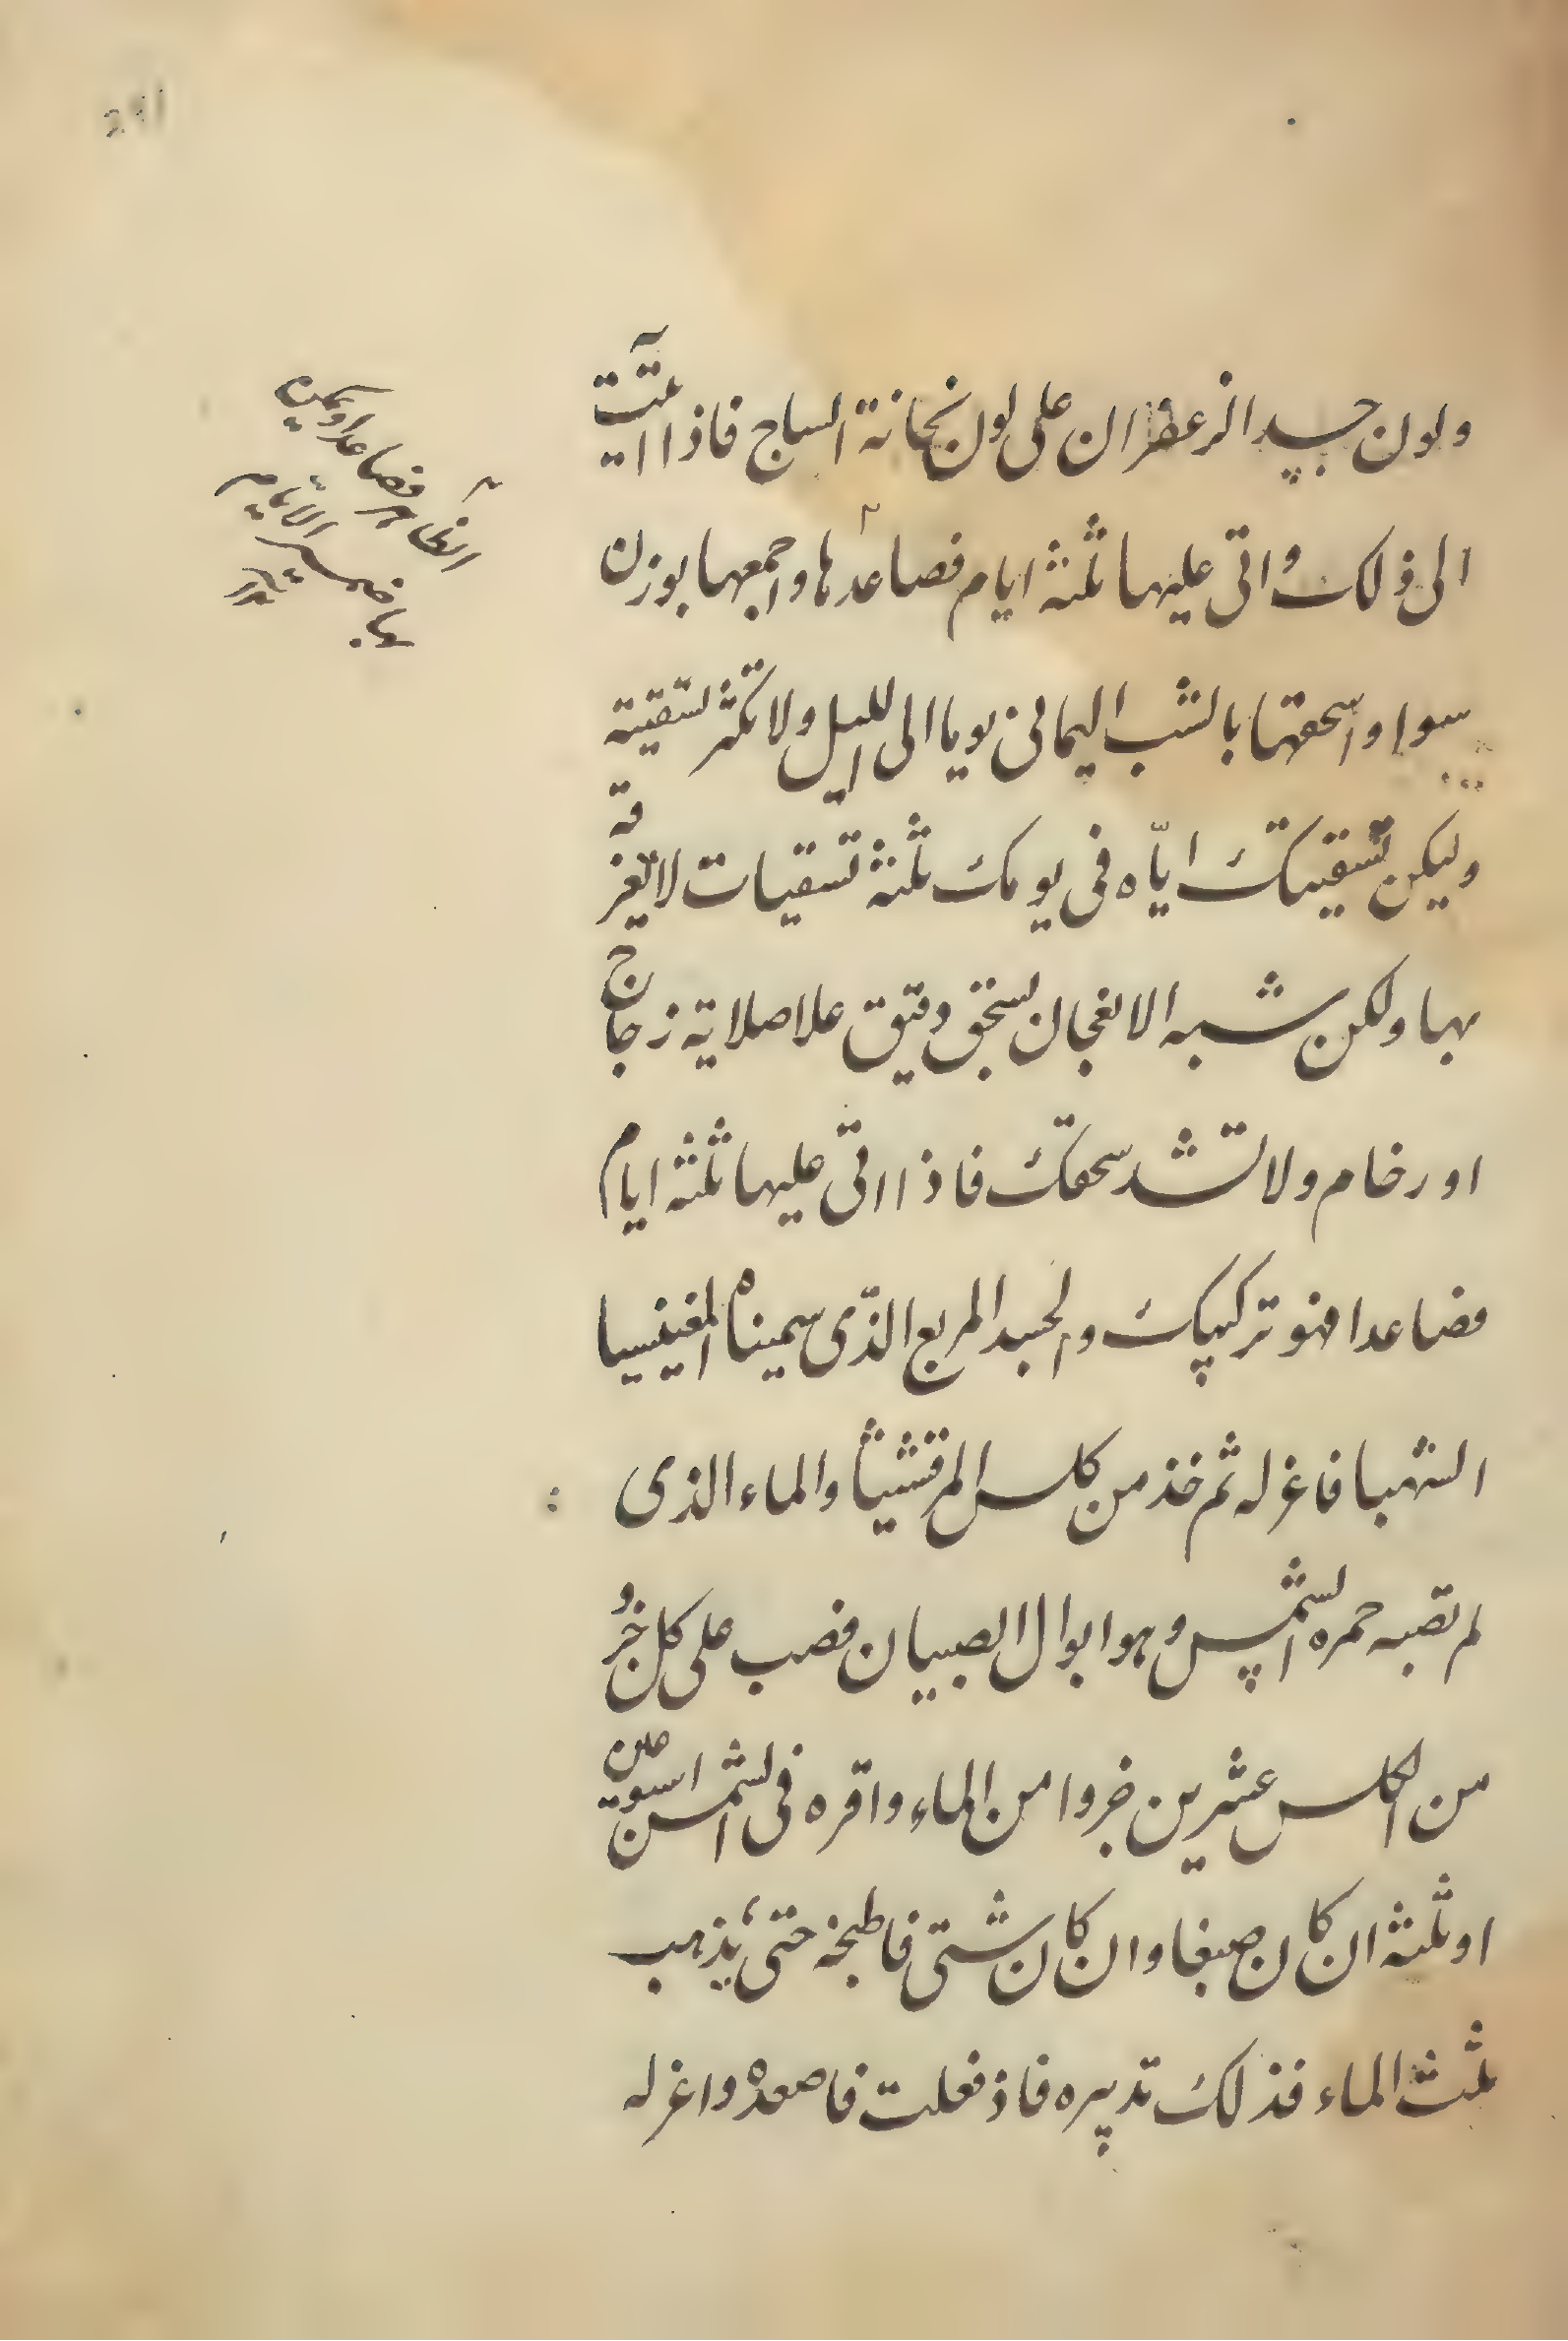 ولون جسد الزعفران على لون نحانة الساج فاذا اتيت
الى ذلك واتى عليها ثلثة ايام فصاعدها واجمعها بوزن
سواء واسحقها بالشب اليمانى يوما الى الليل ولا تكثر تسقيته
وليكن تسقيتك اياه فى يومك ثلثة تسقيات لا تغرقه
بها ولكن شبه الانعجان بسحق دقيق علا صلاية زجاج
او رخام ولا تشد سحقك فاذا اتى عليها ثلثة ايام
فصاعدا فهو تركيبك والجسد المربع الذى سميناه المغنيسيا
الشهبا فاعزله ثم خذ من كلس المرقشيثا والماء الذى
لم تصبه حمره الشمس وهو ابوال الصبيان فصب على كل جزو
من الكلس عشرين جزوا من الماء واقره فى الشمس اسبوعين
او ثلثة ان كان صيفا وان كان شتى فاطبخه حتى يذهب
ثلث الماء فذلك تدبيره فاذ فعلت فاصعده واعزله
الظاهر فصاعدا